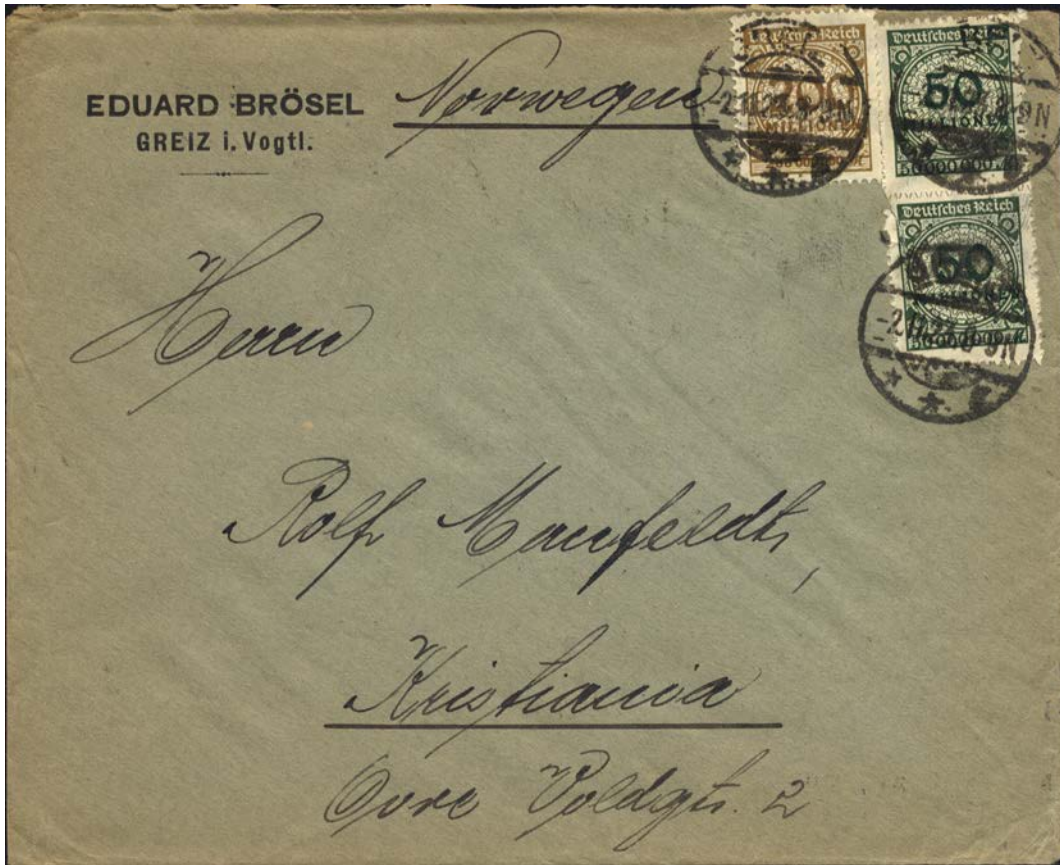 EDUARD BRÖSEL
GREIZ i. Vogtl.
Norwegen
Deutsches Reich
200
MILLIONEN
Deutsches Reich
50
MILLIONEN
50000000 M
Deutsches Reich
50
-2.11.23.8-9N
Herrn
Rolf
Kristiania
Övre Voldgts. 2